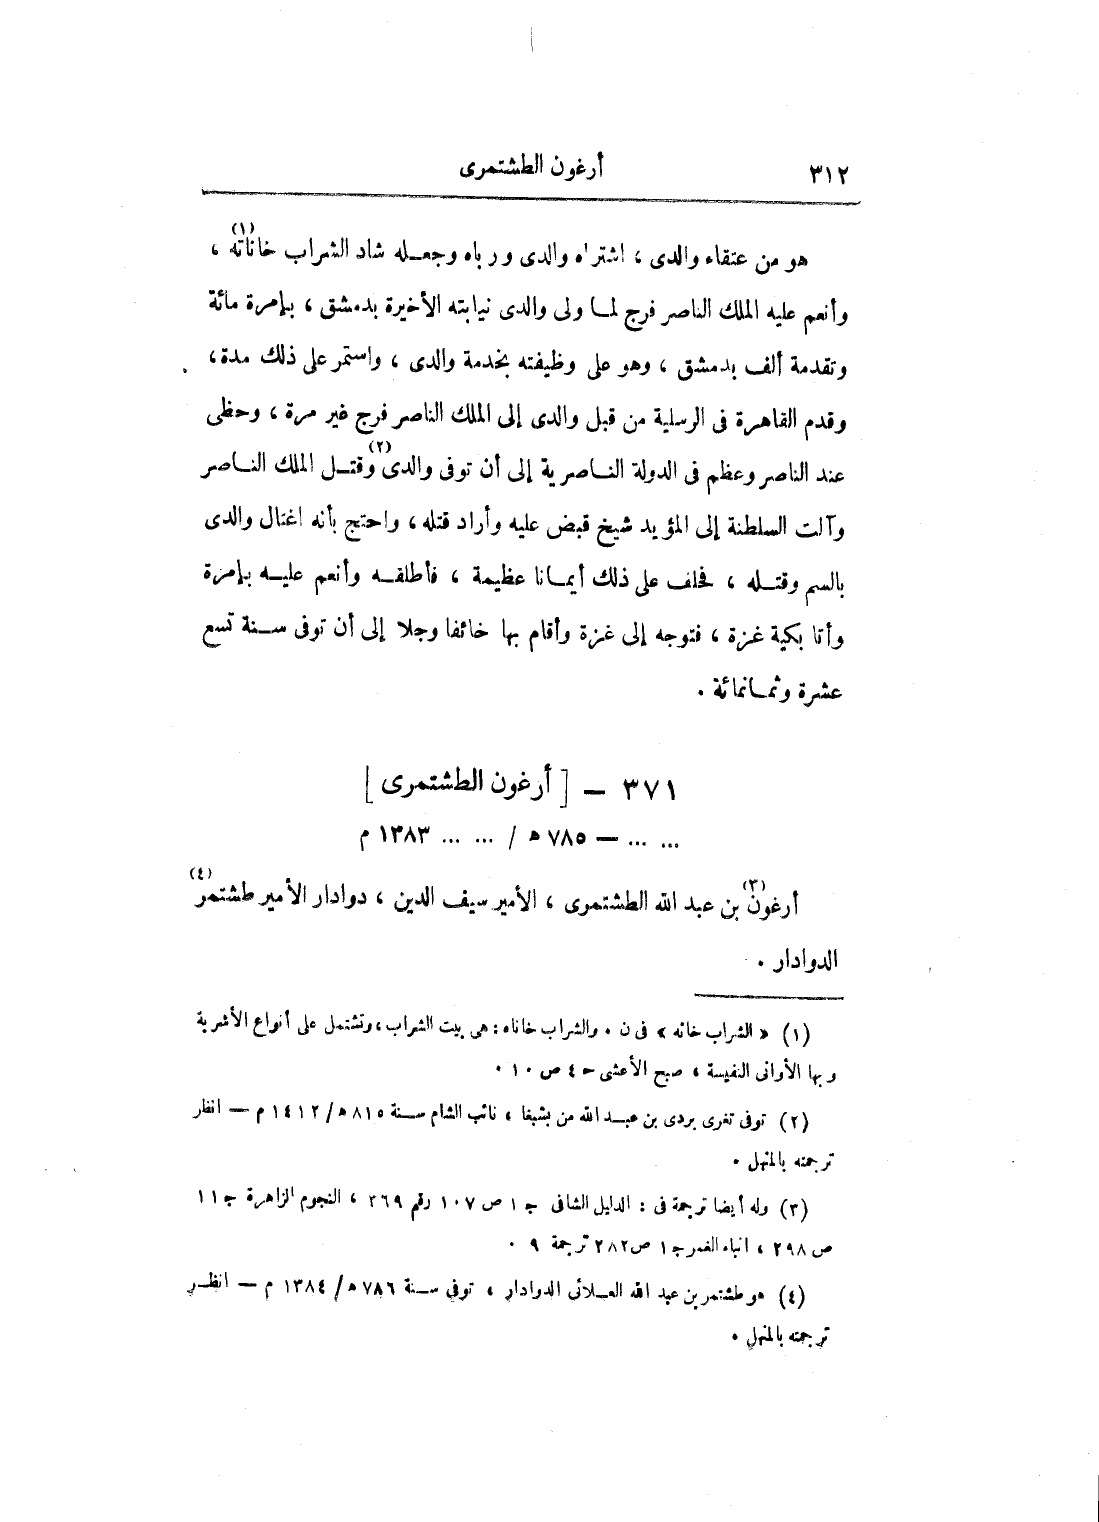 ٣١٢ أرغون الطشتمرى
هو من عتقاء والدى ، اشتراه والدى ورباه وجعله شاد الشراب خاناته (١) ،
وأنعم عليه الملك الناصر فرج لما ولى والدى نيابته الأخيرة بدمشق ، بإمرة مائة
وتقدمة ألف بدمشق ، وهو على وظيفته بخدمة والدى ، واستمر على ذلك مدة ،
وقدم القاهرة فى الرسلية من قبل والدى إلى الملك الناصر فرج غير مرة ، وحظى
عند الناصر وعظم فى الدولة الناصرية إلى أن توفى والدى (٢) وقتل الملك الناصر
وآلت السلطنة إلى المؤيد شيخ قبض عليه وأراد قتله ، واحتج بأنه اغتال والدى
بالسم وقتله ، فحلف على ذلك أيمانا عظيمة ، فأطلقه وأنعم عليه بإمرة
وأتابكية غزة ، فتوجه إلى غزة وأقام بها خائفا وجلا إلى أن توفى سنة تسع
عشرة وثمانمائة .
٣٧١ – [ أرغون الطشتمرى ]
... ... – ٧٨٥ ھ / ... ... ١٣٨٣ م
أرغون (٣) بن عبد الله الطشتمرى ، الأمير سيف الدين ، دوادار الأمير طشتمر (٤)
الدوادار .
(١) « الشراب خانه » فى ن . والشراب خاناه : هى بيت الشراب ، وتشتمل على أنواع الأشربة
وبها الأوانى النفيسة ، صبح الأعشى ح ٤ ص ١٠ .
(٢) توفى تغرى بردى بن عبد الله من بشبغا ، نائب الشام سنة ٨١٥ ھ / ١٤١٢ م – انظر
ترجمته بالمنهل .
(٣) وله أيضا ترجمة فى : الدليل الشافى ج ١ ص ١٠٧ رقم ٣٦٩ ، النجوم الزاهرة ج ١١
ص ٢٩٨ ، انباء الغمر ج ١ ص ٢٨٢ ترجمة ٩ .
(٤) هو طشتمر بن عبد الله العلائى الدوادار ، توفي سنة ٧٨٦ ھ / ١٣٨٤ م – انظر
ترجمته بالمنهل .